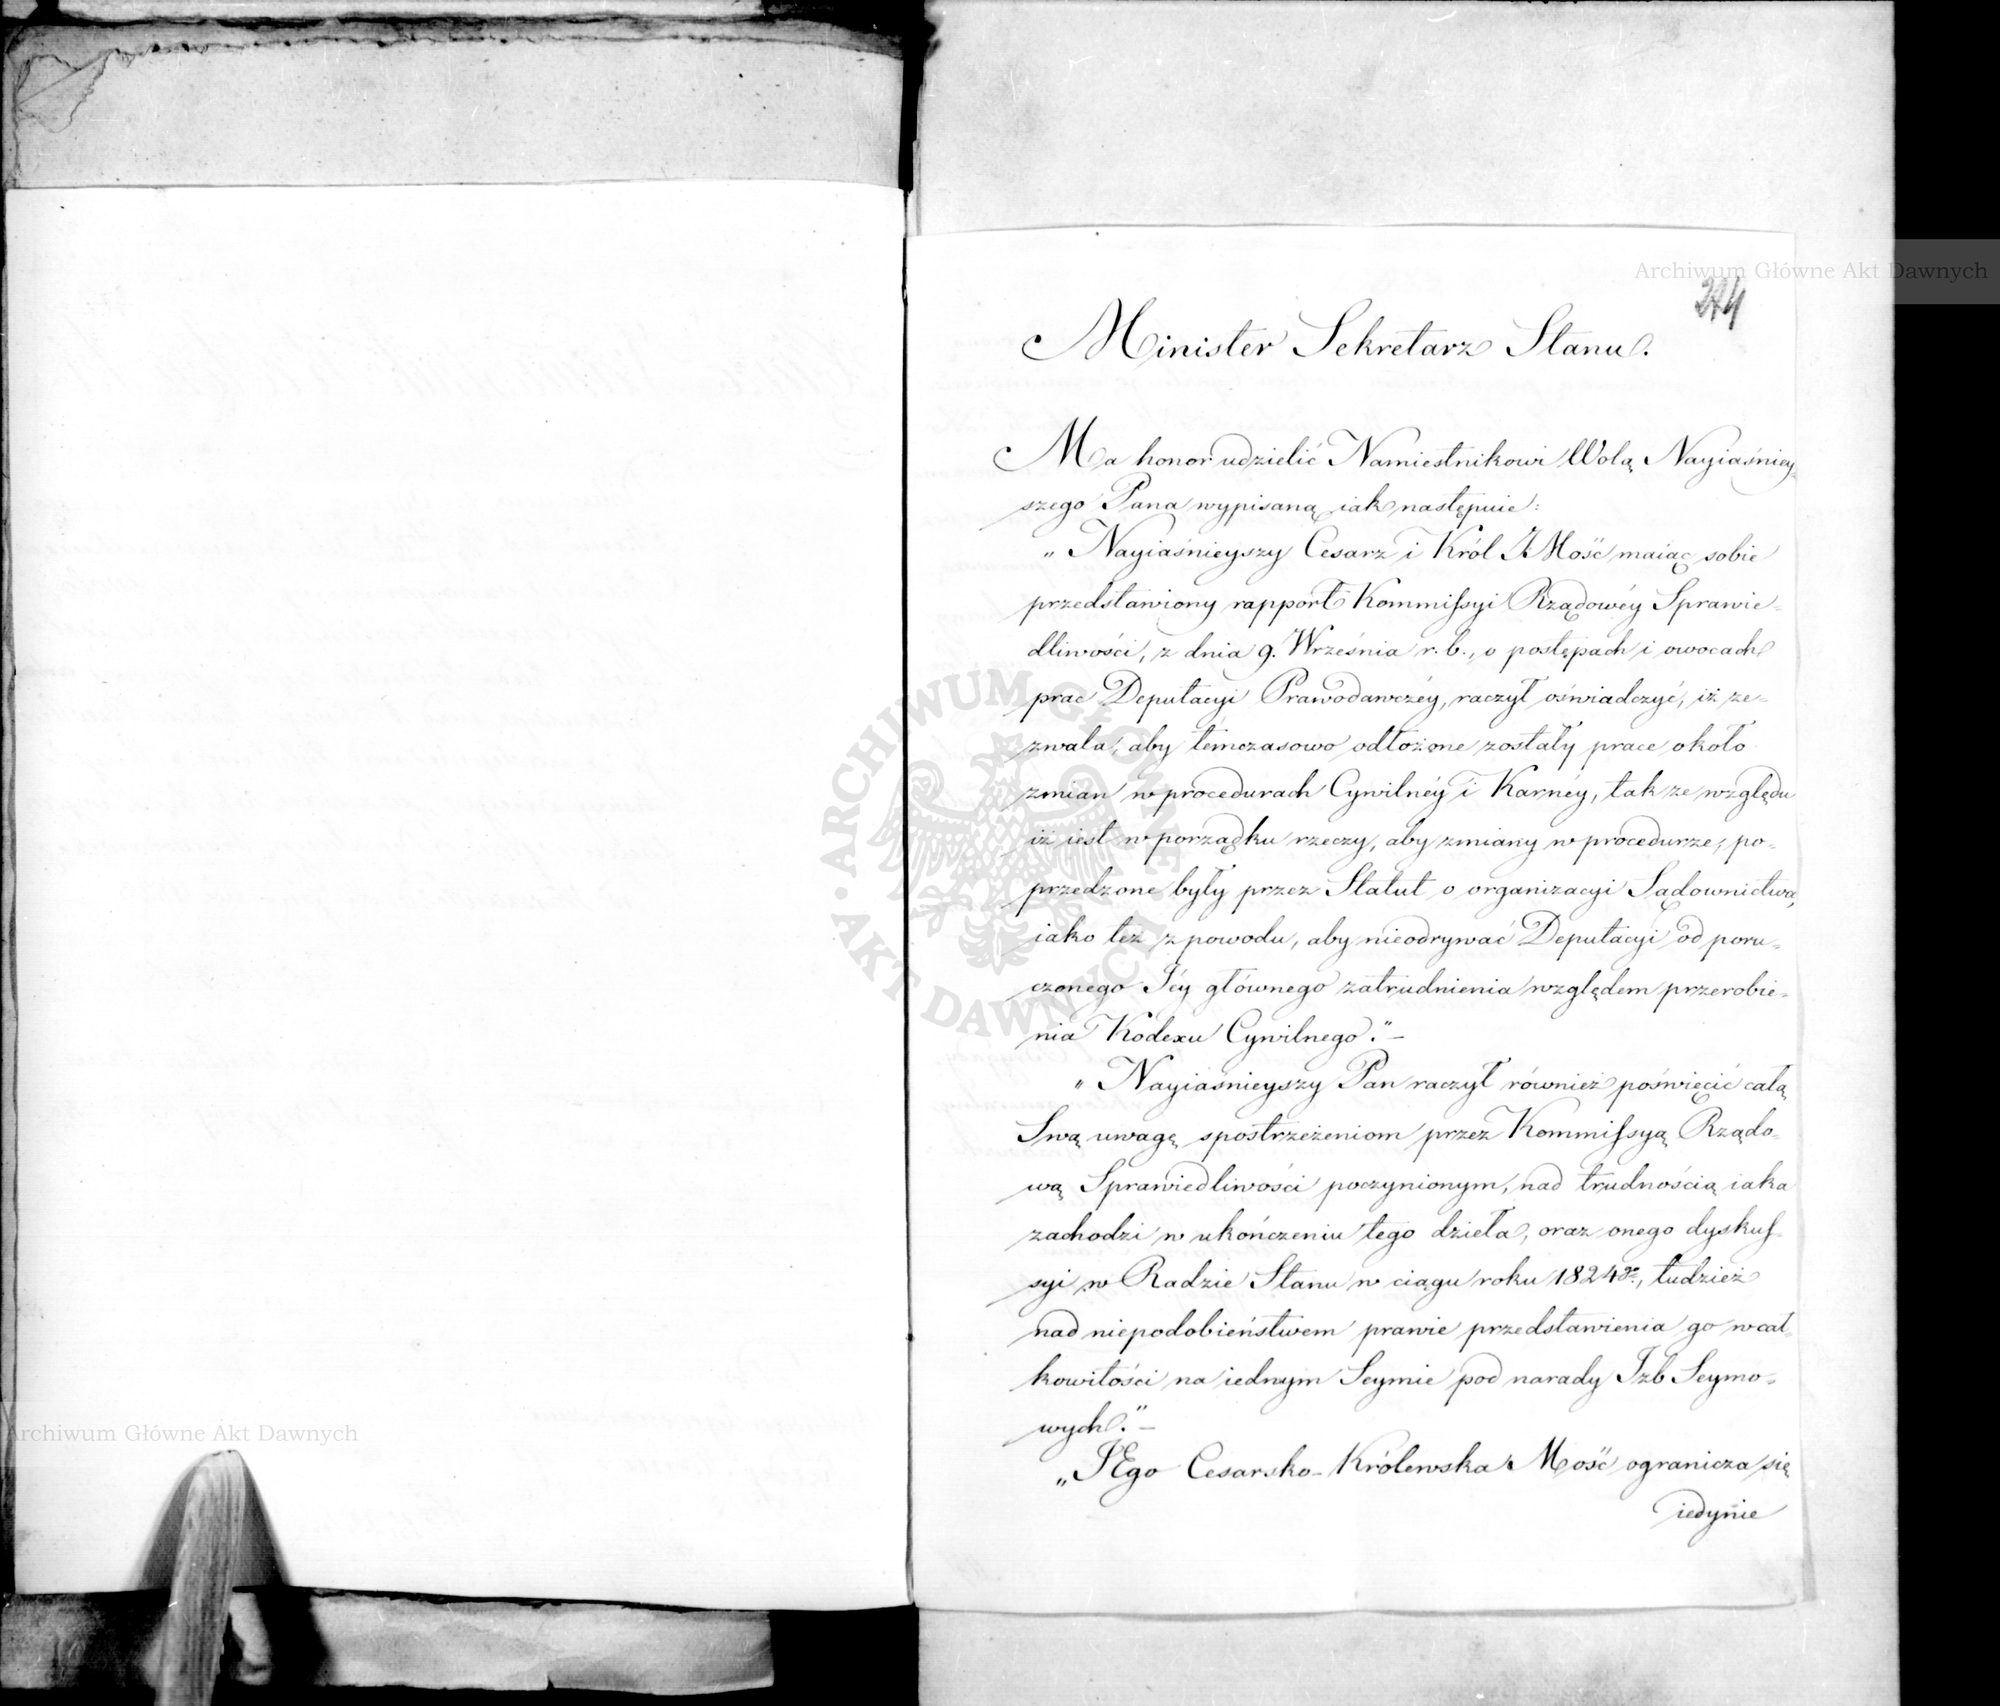 Archiwum Główne Akt Dawnych
Minister Sekretarz Stanu.
Ma honor udzielić Namiestnikowi Wolą Nayiaśniey-
szego Pana wypisaną iak następuie:
„Nayiaśnieyszy Cesarz i Król JMość maiąc sobie
przedstawiony rapport Kommissyi Rządowéy Sprawie-
dliwości, z dnia 9. Września r. b., o postępach i owocach
prac Deputacyi Prawodawczéy, raczył oświadczyć, iż ze-
zwala, aby témczasowo odłożone zostały prace około
zmian w procedurach Cywilnéy i Karnéy, tak ze względu
iż iest w porządku rzeczy, aby zmiany w procedurze, po-
przedzone były przez Statut o organizacyi Sądownictwa,
iako też z powodu, aby nieodrywać Deputacyi od poru-
czonego Jéy głównego zatrudnienia względem przerobie-
nia Kodexu Cywilnego.”—
„Nayiaśnieyszy Pan raczył również poświęcić całą
Swą uwagę spostrzeżeniom przez Kommissyą Rządo-
wą Sprawiedliwości poczynionym, nad trudnością iaka
zachodzi w ukończeniu tego dzieła, oraz onego dyskus-
syi w Radzie Stanu w ciągu roku 1824go, tudzież
nad niepodobieństwem prawie przedstawienia go w cał-
kowitości na iednym Seymie pod narady Izb Seymo-
wych.”—
„JEgo Cesarsko-Królewska Mość ogranicza się
iedynie
ARCHIWUM GŁÓWNE AKT DAWNYCH
Archiwum Główne Akt Dawnych